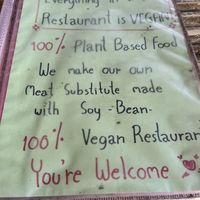 Everything in
Restaurant is VEGAN
100% Plant Based Food
We make our own
Meat Substitute made
with Soy -Bean-
100% Vegan Restauran
You're Welcome